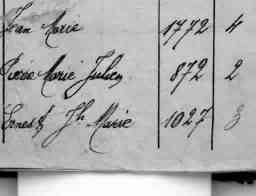 Jean Marie 1772 4
Pierre Marie Julien 872 2
Ernest Jh Marie 1027 3